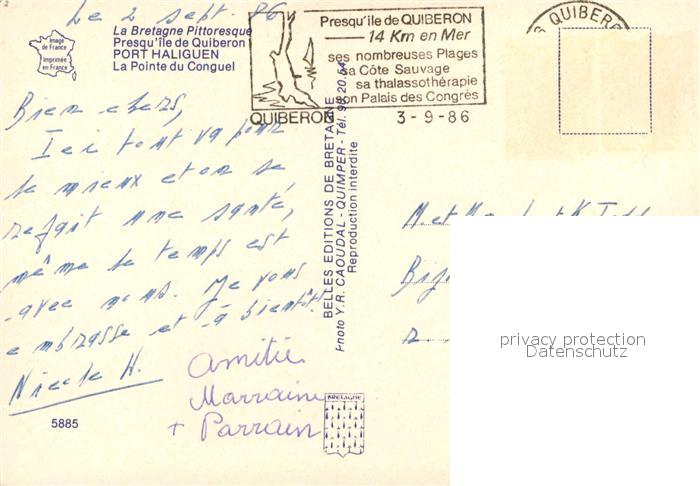 Le 2 sept. 86
Image
de France
Imprimée
en France
La Bretagne Pittoresque
Presqu'île de Quiberon
PORT HALIGUEN
La Pointe du Conguel
Presqu'ile de QUIBERON
14 Km en Mer
ses nombreuses Plages
sa Côte Sauvage
sa thalassothérapie
son Palais des Congrès
QUIBERON
3-9-86
QUIBERON
Bien chers,
Ici tout va pour
le mieux et on se
refait une santé,
même le temps est
avec nous. Je vous
embrasse et à bientôt
Nicole H.
Amitié
Marraine
+ Parrain
5885
BELLES EDITIONS DE BRETAGNE
Photo Y.R. CAOUDAL - QUIMPER - Tél. 95.20.64
Reproduction interdite
BRETAGNE
M et
privacy protection
Datenschutz